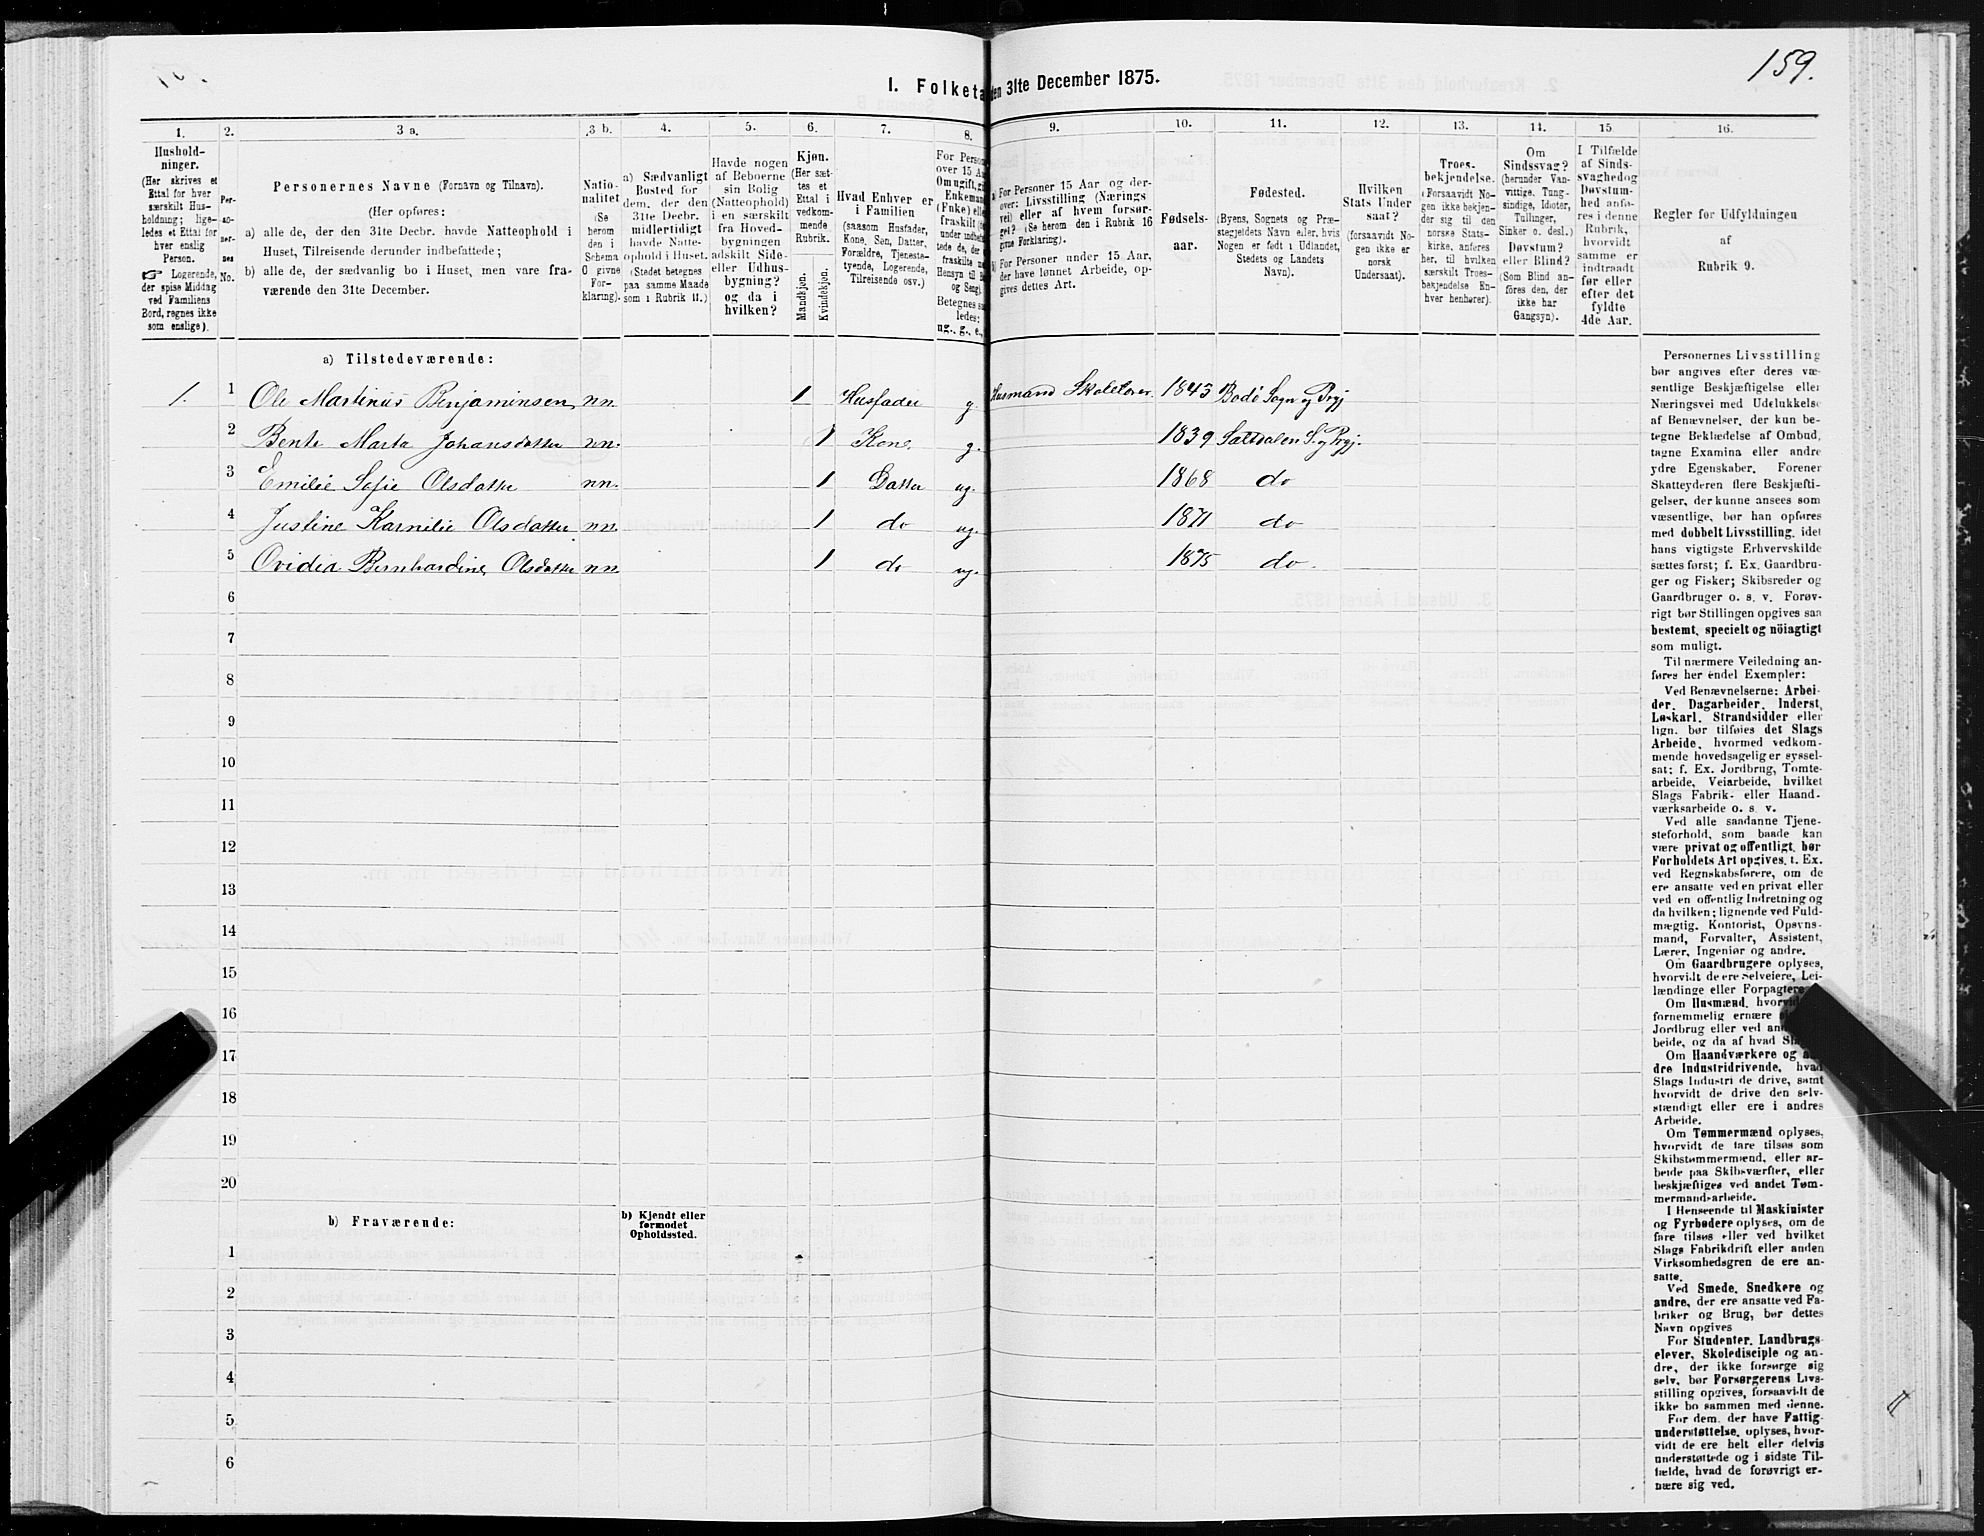 159.
I. Folketa den 31te December 1875.
1. 2. 3 a. 3 b. 4. 5. 6. 7. 8. 9. 10. 11. 12. 13. 14. 15. 16.
Hushold-
ninger.
(Her skrives et
Ettal for hver
særskilt Hus-
holdning; lige-
ledes et Ettal for
hver enslig
Person.
☞ Logerende,
der spise Middag
ved Familiens
Bord, regnes ikke
som enslige).
Per-
so-
ner-
nes
No.
Personernes Navne (Fornavn og Tilnavn).
(Her opføres:
a) alle de, der den 31te Decbr. havde Natteophold i
Huset, Tilreisende derunder indbefattede;
b) alle de, der sædvanlig bo i Huset, men vare fra-
værende den 31te December.
Natio-
nalitet
(Se
herom
den i
Schema
O givne
For-
klaring).
a) Sædvanligt
Bosted for
dem, der den
31te Decbr.
midlertidigt
havde Natte-
ophold i Huset.
(Stedet betegnes
paa samme Maade
som i Rubrik 11.)
Havde nogen
af Beboerne
sin Bolig
(Natteophold)
i en særskilt
fra Hoved-
bygningen
adskilt Side-
eller Udhus-
bygning?
og da i
hvilken?
Kjøn.
(Her sæt-
tes et
Ettal i
vedkom-
mende
Rubrik.
Mandkjøn.
Kvindekjøn.
Hvad Enhver er
i Familien
(saasom Husfader,
Kone, Søn, Datter,
Forældre, Tjeneste-
tyende, Logerende,
Tilreisende osv.)
For Person
over 15 Aa
Om ugift, gi
Enkeman
(Enke) elle
fraskilt (
under indbef
tede de, de
fraskilte n
Hensyn til B
og Seng).
Betegnes sa
ledes:
ug., g., e.,
a) For Personer 15 Aar og der-
over: Livsstilling (Nærings
vei) eller af hvem forsør-
get? (Se herom den i Rubrik 16
givne Forklaring).
b) For Personer under 15 Aar,
der have lønnet Arbeide, op-
gives dettes Art.
Fødsels-
aar.
Fødested.
(Byens, Sognets og Præ-
stegjeldets Navn eller, hvis
Nogen er født i Udlandet,
Stedets og Landets
Navn).
Hvilken
Stats Under
saat?
(forsaavidt No-
gen ikke er
norsk
Undersaat).
Troes-
bekjendelse.
(Forsaavidt No-
gen ikke bekjen-
der sig til den
norske Stats-
kirke, anføres
her, til hvilken
særskilt Troes-
bekjendelse En-
hver henhører).
Om
Sindssvag?
(herunder Van-
vittige, Tung-
sindige, Idioter,
Tullinger,
Sinker o. desl.)
Døvstum?
eller Blind?
(Som Blind an-
føres den, der
ikke har
Gangsyn).
I Tilfælde
af Sinds-
svaghed og
Døvstum-
hed anfø-
res i denne
Rubrik,
hvorvidt
samme er
indtraadt
før eller
efter det
fyldte
4de Aar.
Regler for Udfyldningen
af
Rubrik 9.
a) Tilstedeværende:
1. 1 Ole Martinus Benjaminsen, nn. 1 Husfader g. Husmand Skolelærer. 1843 Bodø Sogn og Prgj
2 Bente Marta Johansdatter nn. 1 Kone g. 1839 Saltdalen S. og Prgj.
3 Emilie Sofie Olsdatter nn. 1 Datter ug. 1868 do
4 Justine Karnilie Olsdatter nn. 1 do ug. 1871 do
5 Ovidia Bernhardine Olsdatter nn. 1 do ug. 1875 do.
6
7
8
9
10
11
12
13
14
15
16
17
18
19
20
b) Fraværende:
b) Kjendt eller
formodet
Opholdssted.
1
2
3
4
5
6
Personernes Livsstilling
bør angives efter deres væ-
sentlige Beskjæftigelse eller
Næringsvei med Udelukkelse
af Benævnelser, der kun be-
tegne Beklædelse af Ombud,
tagne Examina eller andre
ydre Egenskaber. Forener
Skatteyderen flere Beskjæfti-
gelser, der kunne ansees som
væsentlige, bør han opføres
med dobbelt Livsstilling, idet
hans vigtigste Erhvervskilde
sættes først; f. Ex. Gaardbru-
ger og Fisker; Skibsreder og
Gaardbruger o. s. v. Forøv-
rigt bør Stillingen opgives saa
bestemt, specielt og nöiagtigt
som muligt.
Til nærmere Veiledning an-
føres her endel Exempler:
Ved Benævnelserne: Arbei-
der, Dagarbeider, Inderst,
Løskarl, Strandsidder eller
lign. bør tilføies det Slags
Arbeide, hvormed vedkom-
mende hovedsagelig er syssel-
sat; f. Ex. Jordbrug, Tomte-
arbeide, Veiarbeide, hvilket
Slags Fabrik- eller Haand-
værksarbeide o. s. v.
Ved alle saadanne Tjene-
steforhold, som baade kan
være privat og offentligt, bør
Forholdets Art opgives, t. Ex.
ved Regnskabsførere, om de
ere ansatte ved en privat eller
ved en offentlig Indretning og
da hvilken; lignende ved Fuld-
mægtig, Kontorist, Opsyns-
mand, Forvalter, Assistent,
Lærer, Ingeniør og andre.
Om Gaardbrugere oplyses,
hvorvidt de ere Selveiere, Lei-
lændinge eller Forpagtere
Om Husmænd, hvorvi
fornemmelig ernære
Jordbrug eller ved an
beide, og da af hvad Sl
Om Haandværkere og a
dre Industridrivende, hvad
Slags Industri de drive, samt
hvorvidt de drive den selv-
stændigt eller ere i andres
Arbeide.
Om Tømmermænd oplyses,
hvorvidt de fare tilsøs som
Skibstømmermænd, eller ar-
beide paa Skibsværfter, eller
beskjæftiges ved andet Tøm-
mermandsarbeide.
I Henseende til Maskinister
og Fyrbødere oplyses, om de
fare tilsøs eller ved hvilket
Slags Fabrikdrift eller anden
Virksomhedsgren de ere an-
satte.
Ved Smede, Snedkere og
andre, der ere ansatte ved Fa-
briker og Brug, bør dettes
Navn opgives
For Studenter, Landbrugs-
elever, Skoledisciple og an-
dre, der ikke forsørge sig
selv, bør Forsørgerens Livs-
stilling opgives, forsaavidt de
ikke bo sammen med denne.
For dem, der have Fattig-
understøttelse, oplyses, hvor-
vidt de ere helt eller delvis
understøttede og i sidste Til-
fælde, hvad de forøvrigt er-
nære sig ved.